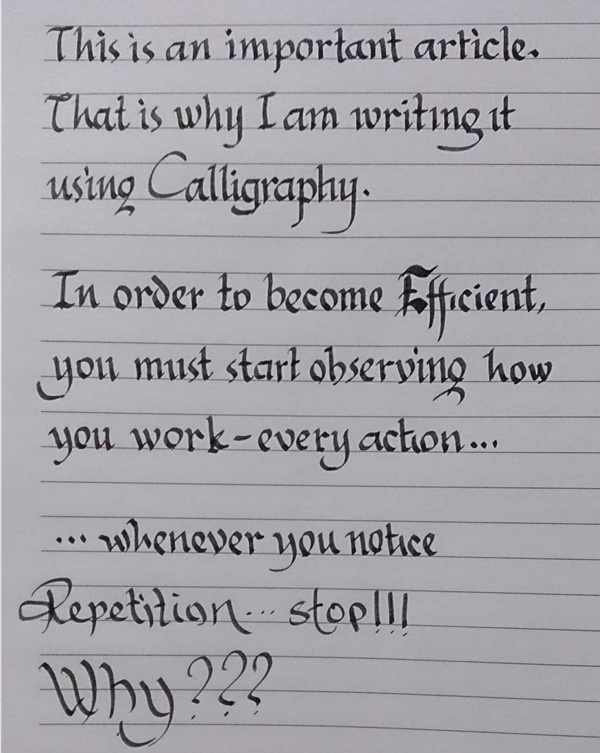 This is an important article.
That is why I am writing it
using Calligraphy.
In order to become Efficient,
you must start observing how
you work - every action...
... whenever you notice
Repetition... stop!!!
Why???